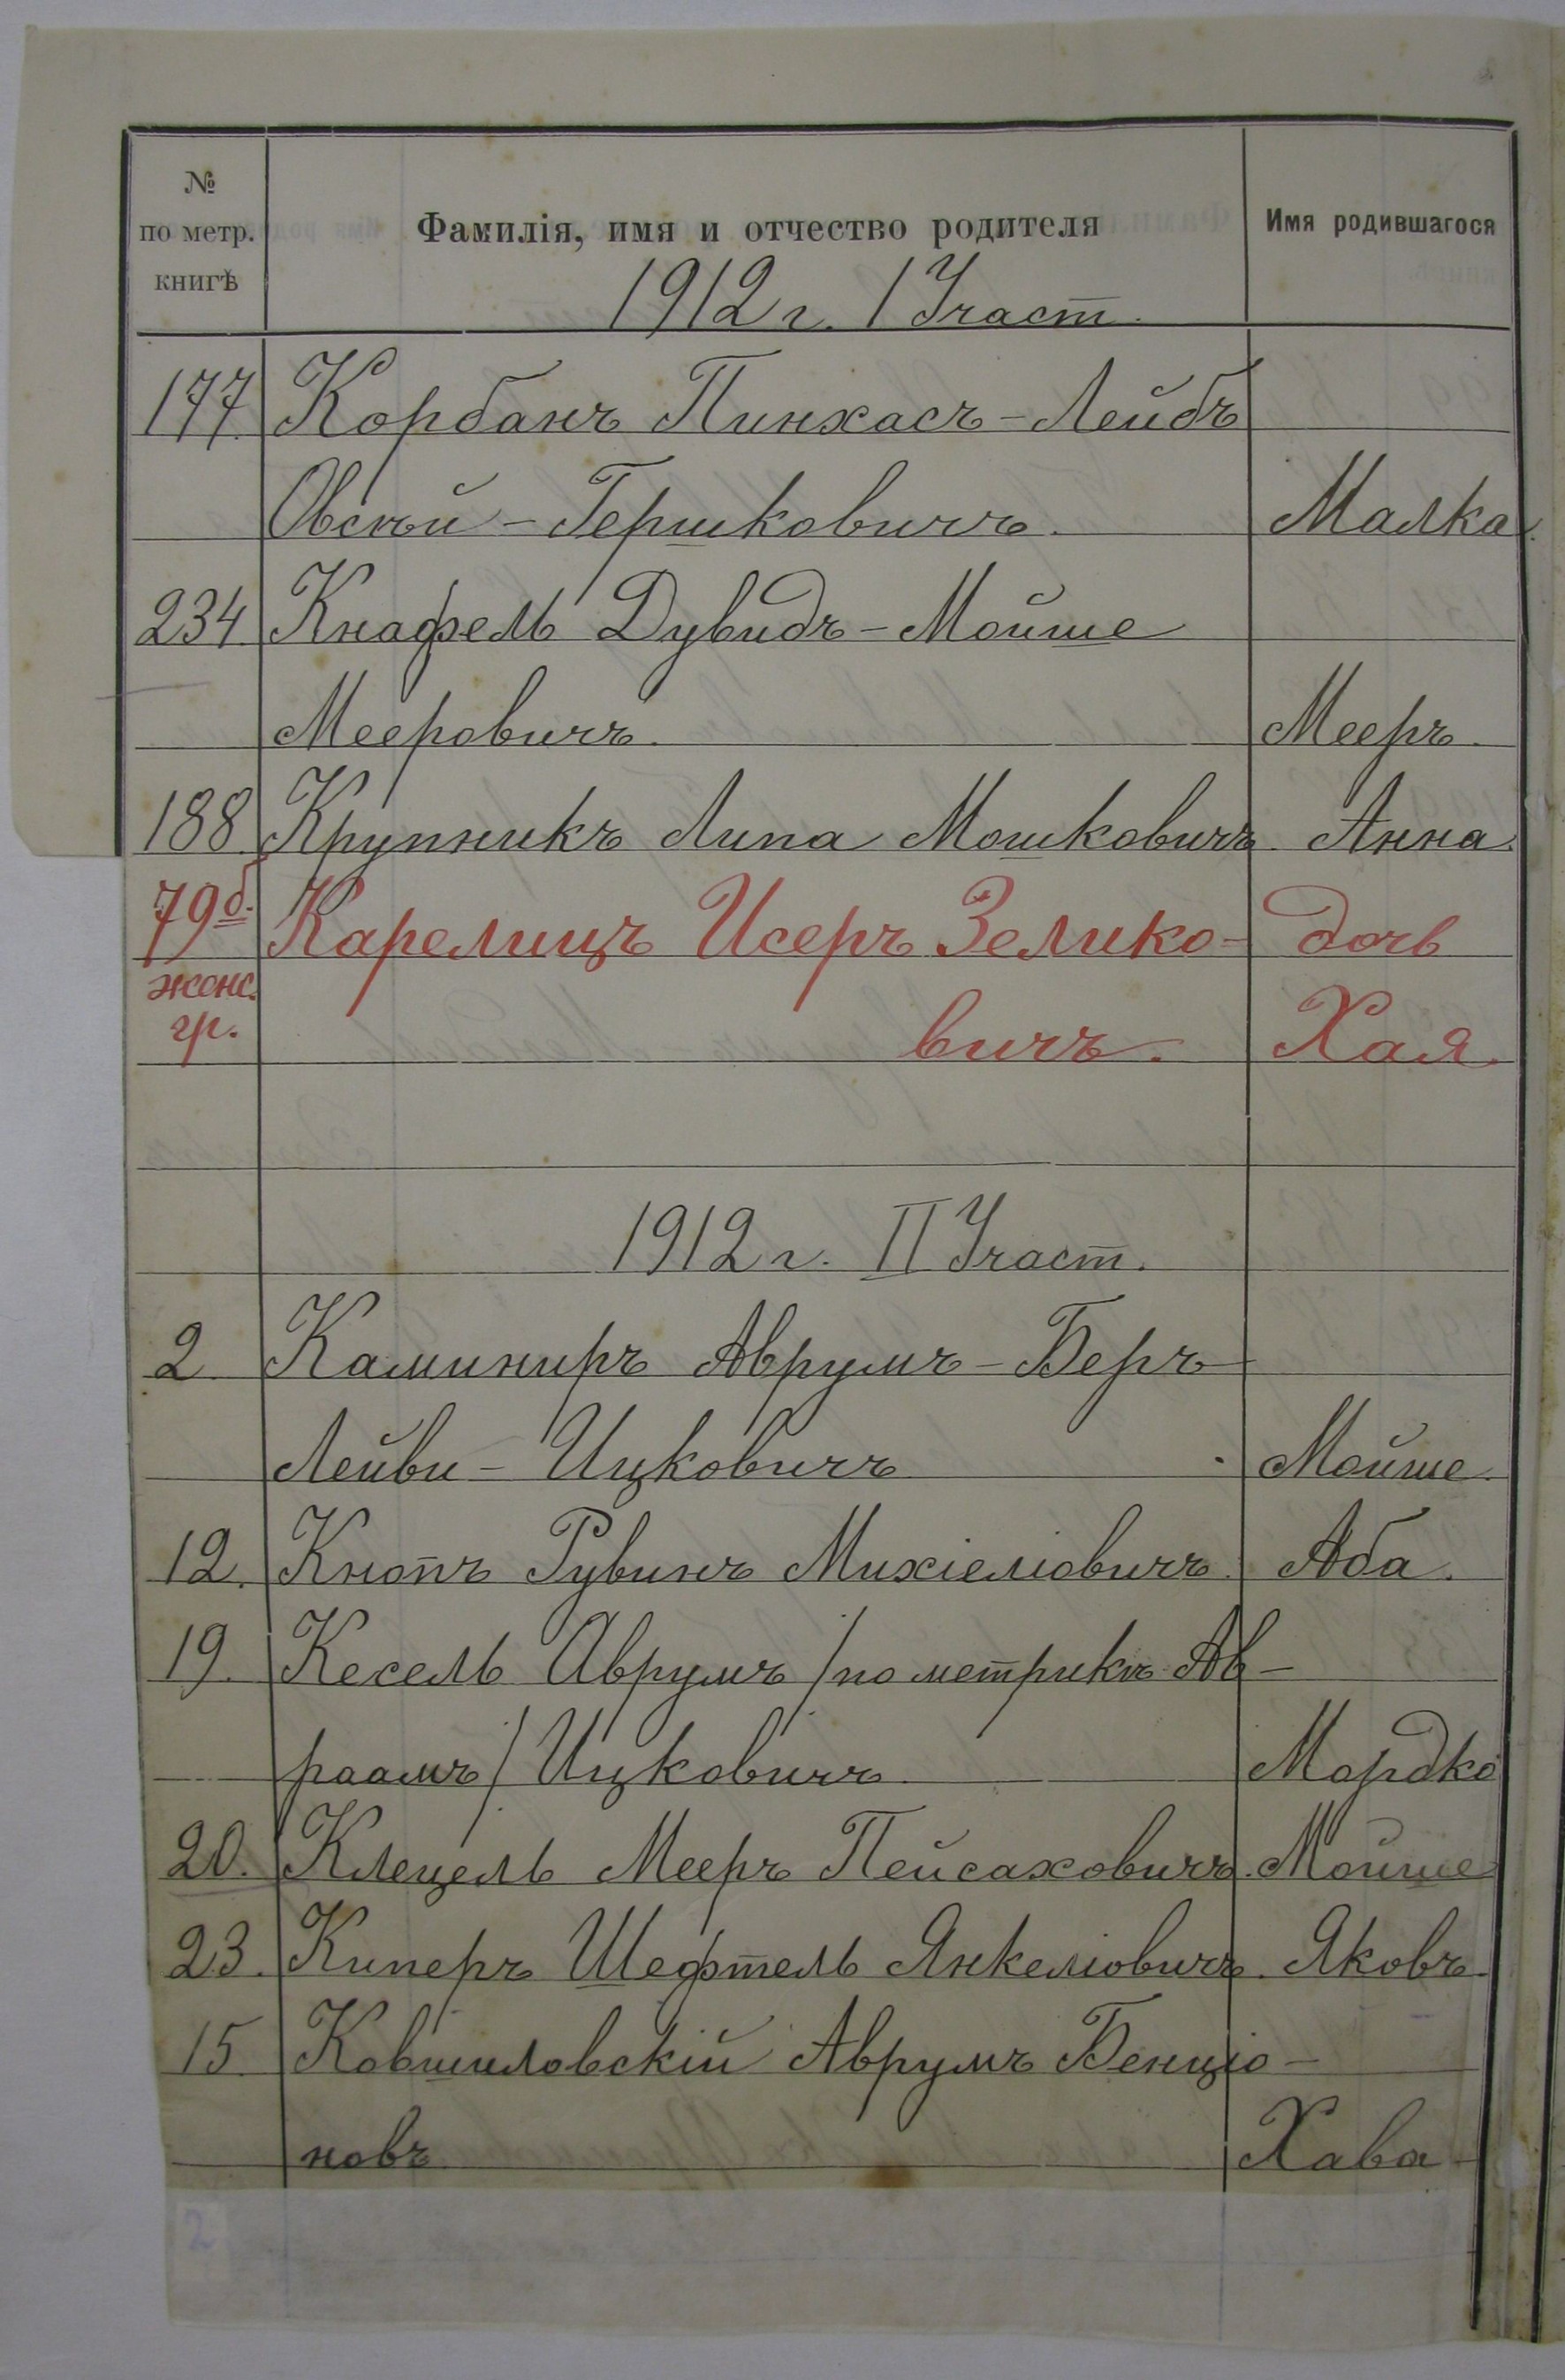 № по метр. книгѣ Фамилія, имя и отчество родителя Имя родившагося
1912 г. I Участ.
177 Корбанъ Пинхасъ-Лейбъ
Овсѣй-Гершковичъ. Малка.
234 Кнафель Дувидъ-Мойше
Мееровичъ. Мееръ.
188 Крупникъ Липа Мошковичъ. Анна.
79б. Карелицъ Исеръ Зелико- дочь
женс. гр. вичъ. Хая.
1912 г. II Участ.
2 Каминиръ Аврумъ-Беръ
Лейви-Ицковичъ Мойше.
12. Кнопъ Рувинъ Михіеліовичъ. Аба.
19. Кесель Аврумъ /по метрикѣ Ав-
раамъ/ Ицковичъ Мордко
20. Клецель Мееръ Пейсаховичъ. Мойше
23. Киперъ Шефтель Янкеліовичъ. Яковъ.
15. Ковшиловскій Аврумъ Бенціо-
новъ Хава
2